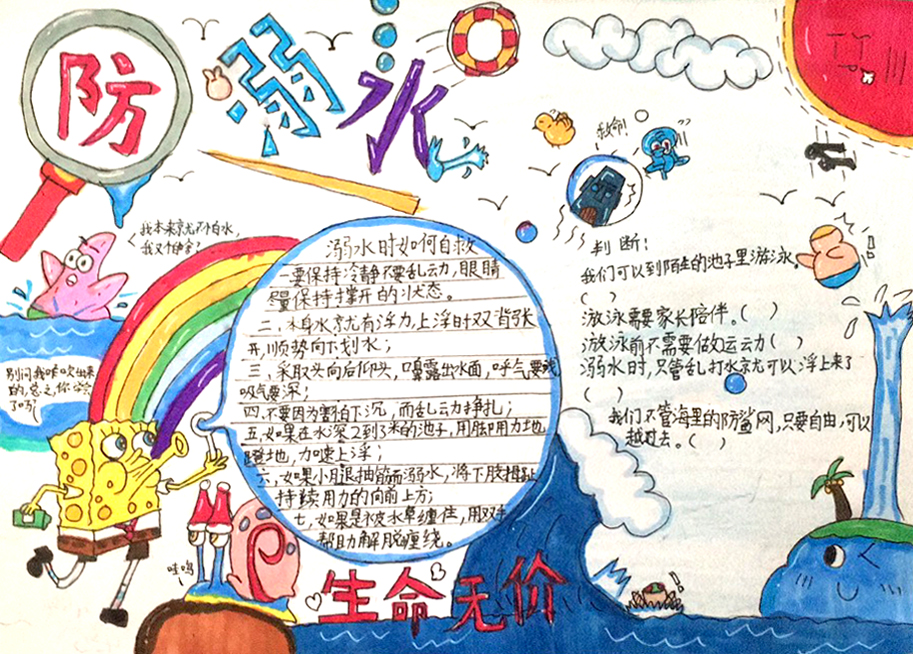 防溺水
我本来就不怕水,
我又个
救命!
别问我咋吹出来
的,总之,你学会
了吗?
哇呜
溺水时如何自救
一要保持冷静不要乱动,眼睛
尽量保持撑开的状态。
二、本身水就有浮力,上浮时双臂张
开,顺势向下划水;
三、采取头向后仰头,口鼻露出水面,呼气要浅
吸气要深;
四、不要因为害怕下沉,而乱云力挣扎;
五、如果在水深2到3米的池子,用脚用力地
蹬地,加速上浮;
六、如果小腿抽筋而溺水,将下肢拇趾
持续用力的向前上方;
七、如果是被水草缠住,用双手
帮助解脱缠绕。
判断:
我们可以到陌生的池子里游泳。
( )
游泳需要家长陪伴。( )
游泳前不需要做运动( )
溺水时,只管乱打水就可以浮上来了
( )
我们不管海里的防鲨网,只要自由,可以
越过去。( )
生命无价